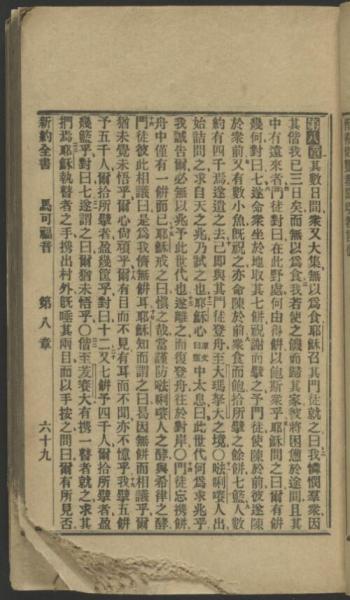 第八章 其數日間衆又大集無以爲食耶穌召其門徒就之曰我憐憫羣衆因
其偕我已三日矣而無以爲食我若使之饑而歸其家彼將因憊於途間且其
中有遠來者門徒對曰在此野處何由得餅以飽斯衆乎耶穌問之曰爾有餅
幾何對曰七遂命衆坐於地取其七餅祝謝而擘之予門徒使陳於前彼遂陳
於衆前又有數小魚旣祝之亦命陳於前衆食而飽拾所擘之餘餅七籃人數
約有四千焉遂遣之去己卽與其門徒登舟至大瑪拏大之境〇𠵽唎㘔人出
始詰問之求自天之兆乃試之也耶穌心中太息曰此世代何爲求兆乎
我誠告爾必無以兆予此世代也遂離之而復登舟往於對岸〇門徒忘携餅
舟中僅有一餅而已耶穌戒之曰愼之哉當謹防𠵽唎㘔人之酵與希律之酵
門徒彼此相議曰是爲我儕無餅耳耶穌知而謂之曰曷因無餅而相議乎爾
猶未覺未悟乎爾心尚頑乎爾有目而不見有耳而不聞亦不憶乎我擘五餅
予五千人爾拾所擘者盈幾筐乎對曰十二又七餅予四千人爾拾所擘者盈
幾籃乎對曰七遂謂之曰爾猶未悟乎〇偕至𦯉賽大有携一瞽者就之求其
捫焉耶穌執瞽者之手携出村外旣唾其兩目而以手按之問曰爾有所見否
新約全書 馬可福音 第八章 六十九